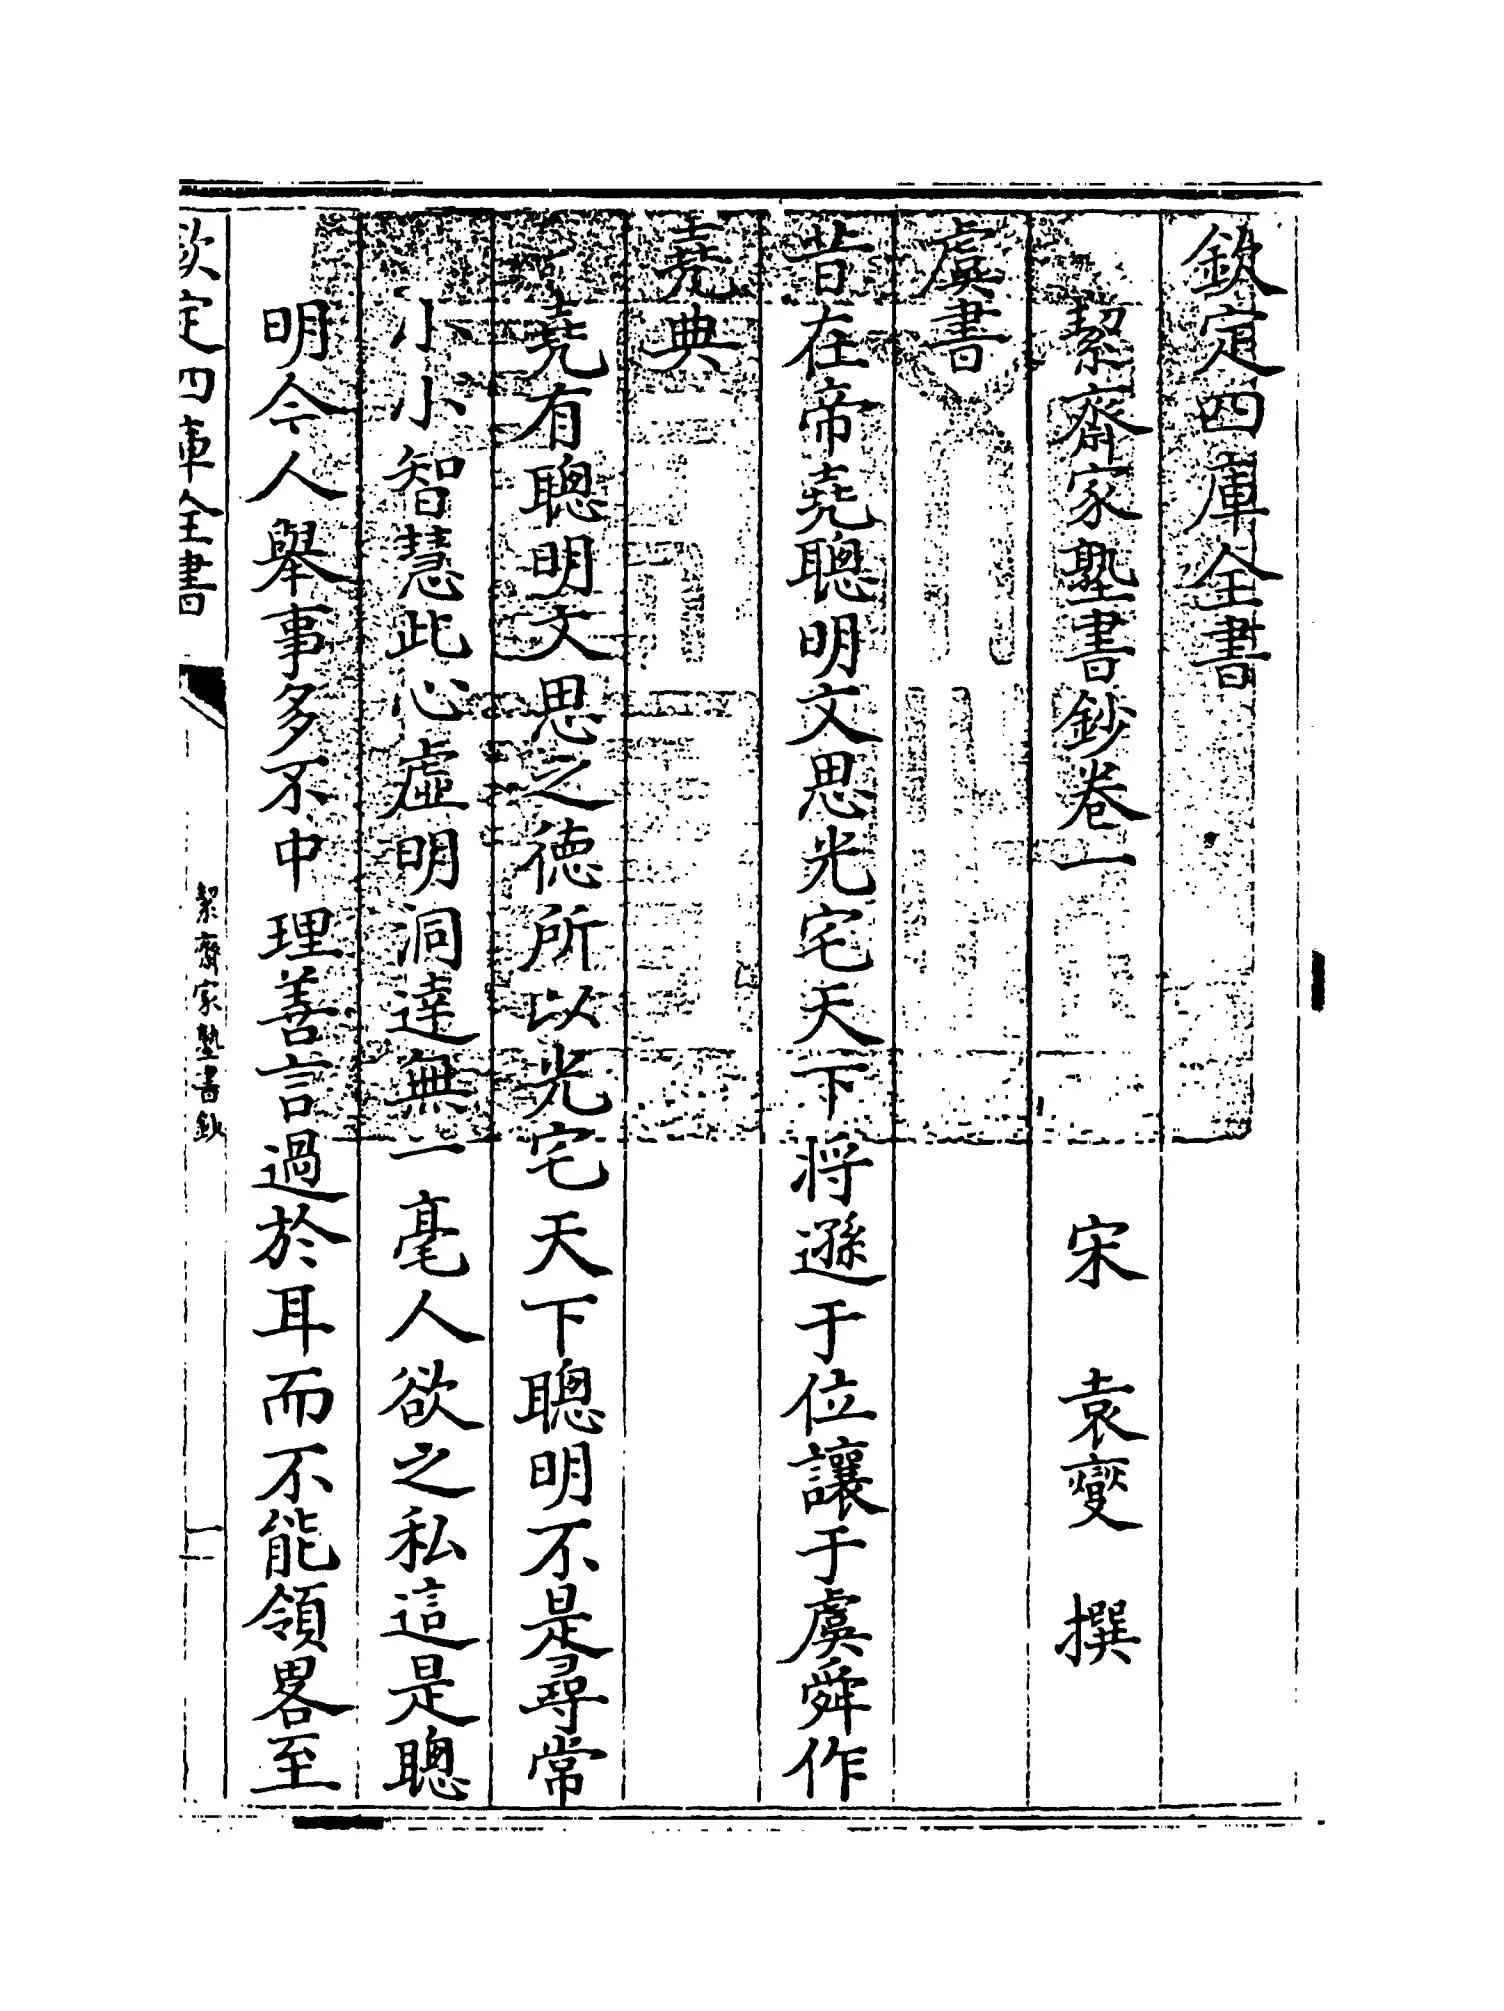 欽定四庫全書
絜齋家塾書鈔卷一　宋　袁燮　撰
虞書
昔在帝堯聰明文思光宅天下將遜于位讓于虞舜作
堯典
堯有聰明文思之德所以光宅天下聰明不是尋常
小小智慧此心虛明洞達無一毫人欲之私這是聰
明今人舉事多不中理善言過於耳而不能領畧至
欽定四庫全書
絜齋家塾書鈔
一